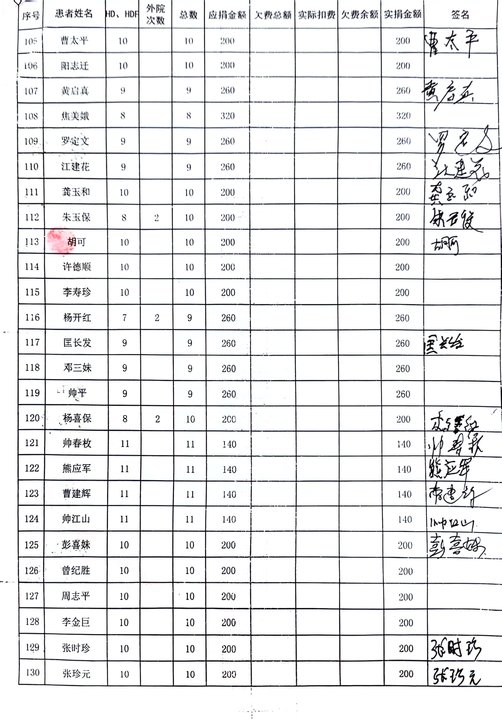 序号 患者姓名 HD、HDF 外院次数 总数 应捐金额 欠费总额 实际扣费 欠费余额 实捐金额 签名
105 曹太平 10 10 200 200 曹太平
106 阳志迁 10 10 200 200
107 黄启真 9 9 260 260 黄启真
108 焦美娥 8 8 320 320
109 罗定文 9 9 260 260 罗定文
110 江建花 9 9 260 260 江建花
111 龚玉和 10 10 200 200 龚玉和
112 朱玉保 8 2 10 200 200
113 胡可 10 10 200 200 胡可
114 许德顺 10 10 200 200
115 李寿珍 10 10 200 200
116 杨开红 7 2 9 260 260
117 匡长发 9 9 260 260
118 邓三妹 9 9 260 260
119 帅平 9 9 260 260
120 杨喜保 8 2 10 200 200
121 帅春枚 11 11 140 140
122 熊应军 11 11 140 140 熊应军
123 曹建辉 11 11 140 140 曹建辉
124 帅江山 11 11 140 140 帅江山
125 彭喜妹 10 10 200 200 彭喜妹
126 曾纪胜 10 10 200 200
127 周志平 10 10 200 200
128 李金巨 10 10 200 200
129 张时珍 10 10 200 200 张时珍
130 张珍元 10 10 200 200 张珍元